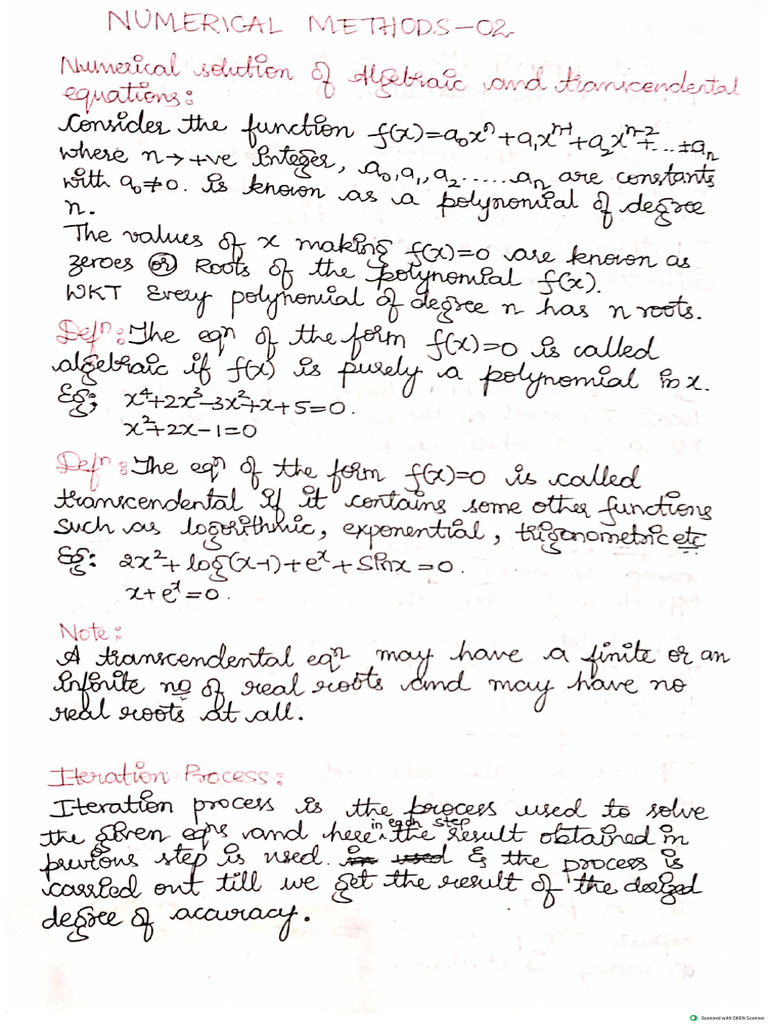 NUMERICAL METHODS-02
Numerical solution of Algebraic and transcendental
equations:
Consider the function f(x)=a₀xⁿ+a₁xⁿ⁻¹+a₂xⁿ⁻²+...±aₙ
where n→+ve integer, a₀,a₁,a₂.....aₙ are constants
with a₀≠0. is known as a polynomial of degree
n.
The values of x making f(x)=0 are known as
zeroes or Roots of the polynomial f(x).
WKT Every polynomial of degree n has n roots.
Defⁿ: The eqⁿ of the form f(x)=0 is called
algebraic if f(x) is purely a polynomial in x.
Eg; x⁴+2x³-3x²+x+5=0.
x²+2x-1=0
Defⁿ: The eqⁿ of the form f(x)=0 is called
transcendental if it contains some other functions
such as logorithmic, exponential, trigonometric etc
Eg: 2x²+log(x-1)+eˣ+sinx=0.
x+eˣ=0.
Note:
A transcendental eqⁿ may have a finite or an
infinite no of real roots and may have no
real roots at all.
Iteration Process:
Iteration process is the process used to solve
the given eqⁿs and here in each step the result obtained in
previous step is used. in used & the process is
carried out till we get the result of the desired
degree of accuracy.
Scanned with OKEN Scanner